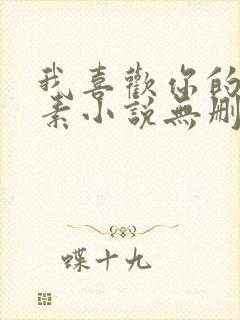 我喜歡你的
素小說無刪
蝶十九